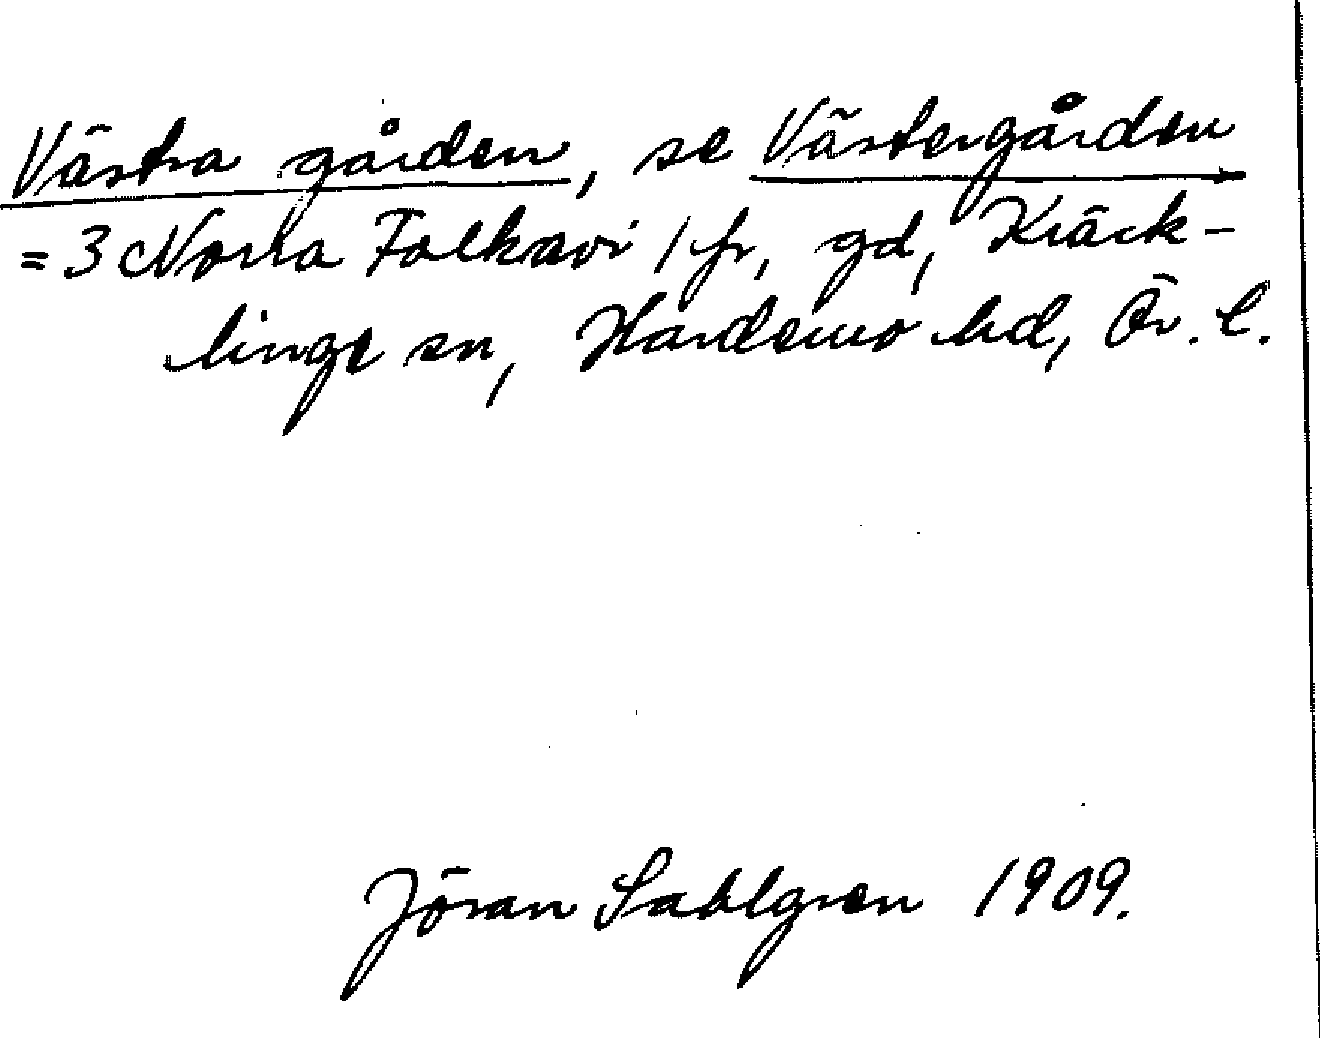 Västra gården, se Västergården
= 3 Norra Folkavi 1 fr, gd, Kräck-
linge sn, Hardemo hd, Ör. l.
Jöran Sahlgren 1909.